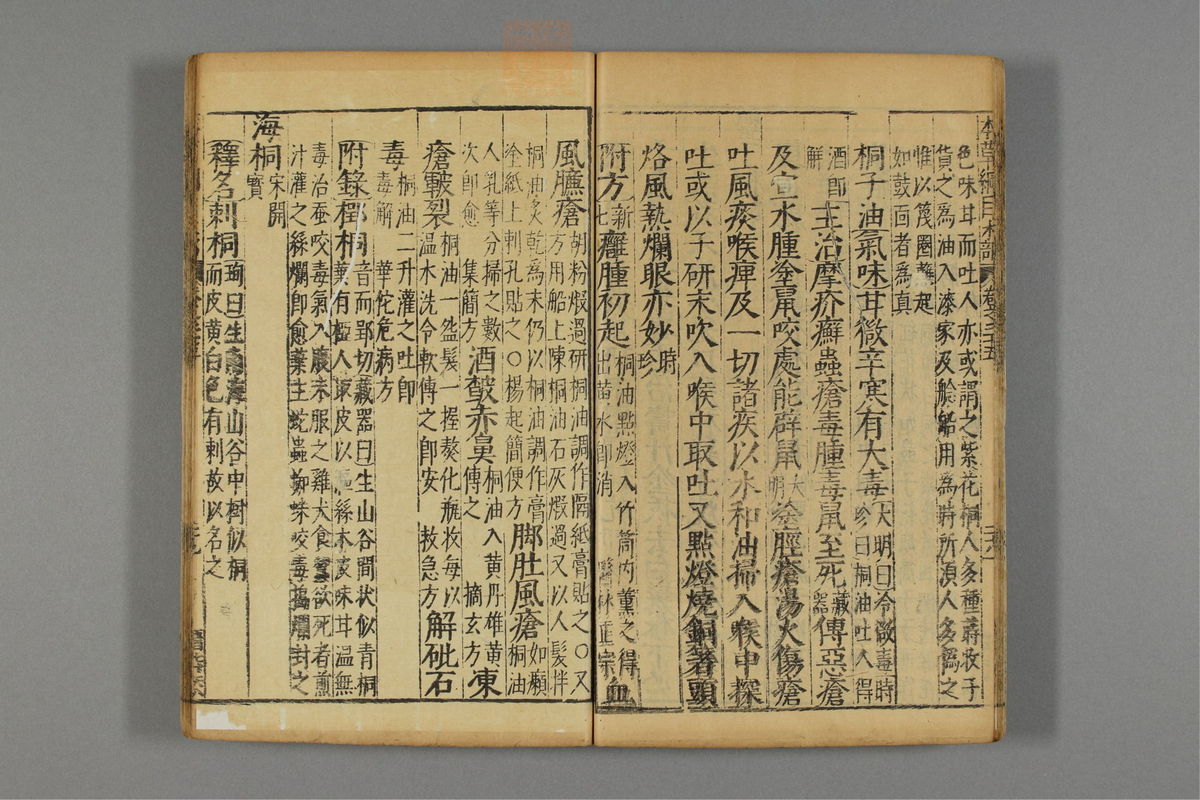 本草綱目木部 卷之三十五
色味甘而吐人亦或謂之紫花桐人多種蒔收子
貨之為油入漆家及艌船用為時所須人多偽之
惟以篾圈蘸起
如鼓面者為真
桐子油氣味甘微辛寒有大毒大明曰冷微毒時
珍曰桐油吐人得
酒即
解 主治摩疥癬蟲瘡毒腫毒鼠至死藏
器傅惡瘡
及宣水腫塗鼠咬處能辟鼠大
明塗脛瘡湯火傷瘡
吐風痰喉痺及一切諸疾以水和油掃入喉中探
吐或以子研末吹入喉中取吐又點燈燒銅箸頭
烙風熱爛眼亦妙時
珍
附方新
七癰腫初起桐油點燈入竹筒內薰之得
出黃水即消 醫林正宗血
風臁瘡胡粉煅過研桐油調作隔紙膏貼之〇又
方用船上陳桐油石灰煅過又以人髮拌
桐油炙乾為末仍以桐油調作膏
塗紙上刺孔貼之〇楊起簡便方脚肚風瘡如癩
桐油
人乳等分掃之數
次即愈 集簡方酒皶赤鼻桐油入黃丹雄黃
傅之 摘玄方凍
瘡皸裂桐油一盌髮一握熬化瓶收每以
溫水洗令軟傅之即安 救急方解砒石
毒桐油二升灌之吐即
毒解 華佗危病方
附錄榿桐音而郢切藏器曰生山谷間狀似青桐
葉有椏人取皮以漚絲木皮味甘溫無
毒治蚕咬毒氣入腹末服之雞犬食蠶欲死者煎
汁灌之絲爛即愈葉主蛇蟲蜘蛛咬毒搗爛封之
海桐宋開
寶
釋名刺桐珣曰生南海山谷中樹似桐
而皮黃白色有刺故以名之